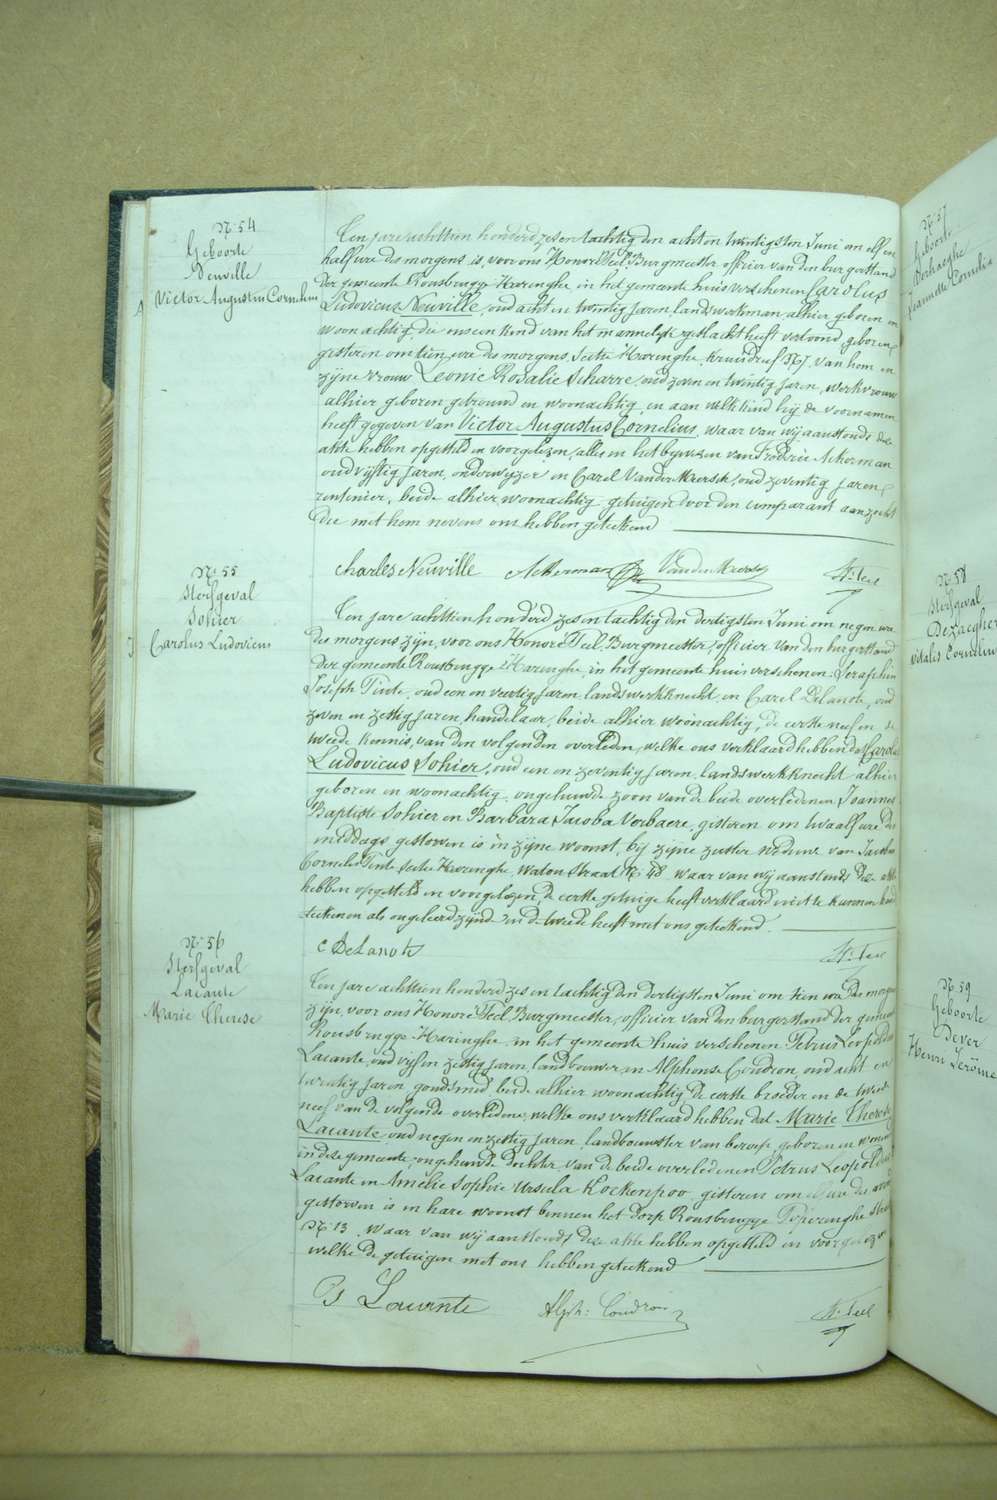 N° 54
Geboorte
Neuville
Victor Augustin Cornelius
Ten jare achttien honderd zes en tachtig den acht en twintigsten Juni om elf en
half ure des morgens is, voor ons Honoré Teel, Burgmeester, officier van den burgerstand
der gemeente Rousbrugge-Haringhe, in het gemeente huis verschenen Carolus
Ludovicus Neuville, oud acht en twintig jaren, landswerkman alhier geboren en
woonachtig, die ons een kind van het mannelijk geslacht heeft vertoond, geboren
gisteren om tien ure des morgens, Sectie Haringhe, Kruisdreef N° 7, van hem en
zijne vrouw Leonie Rosalie Scharre, oud zeven en twintig jaren, werkvrouw
alhier geboren getrouwd en woonachtig, en aan welk kind hij de voornamen
heeft gegeven van Victor Augustus Cornelius, waar van wij aanstonds deze
akte hebben opgesteld en voorgelezen, alles in het bijwezen van Fredric Ackerman
oud vijftig jaren, onderwijzer en Carel Vander Meersch, oud zeventig jaren,
rentenier, beide alhier woonachtig, getuigen door den comparant aanzocht
die met hem nevens ons hebben geteekend
Charles Neuville Ackerman VanderMeersch H. Teel
N° 55
Sterfgeval
Sohier
Carolus Ludovicus
Ten jare achttien honderd zes en tachtig den dertigsten Juni om negen ure
des morgens zijn, voor ons Honoré Teel, Burgmeester, officier van den burgerstand
der gemeente Rousbrugge-Haringhe, in het gemeente huis verschenen: Seraphin
Joseph Tinte, oud een en veertig jaren, landswerkknecht en Carel Delanote, oud
zeven en zestig jaren, handelaar, beide alhier woonachtig, de eerste neef en de
tweede kennis van den volgenden overleden, welke ons verklaard hebben dat Carolus
Ludovicus Sohier, oud een en zeventig jaren, landswerkknecht alhier
geboren en woonachtig, ongehuwde zoon van de beide overledenen Joannes
Baptiste Sohier en Barbara Jacoba Verbaere, gisteren om twaalf ure des
middags gestorven is in zijne woonst, bij zijne zuster weduwe van Jacobus
Cornelis Tinte Sectie Haringhe, Watou straat N° 48. Waar van wij aanstonds deze akte
hebben opgesteld en voorgelezen, de eerste getuige heeft verklaard niet te kunnen
teekenen als ongeleerd zijnde en de tweede heeft met ons geteekend.
C DeLanote H. Teel
N° 56
Sterfgeval
Lacante
Marie Therese
Ten jare achttien honderd zes en tachtig den dertigsten Juni om tien ure des morgens
zijn, voor ons Honoré Teel, Burgmeester, officier van den burgerstand der gemeente
Rousbrugge-Haringhe, in het gemeente huis verschenen Petrus Leopoldus
Lacante, oud vijf en zestig jaren, landbouwer en Alphonse Coudron, oud acht en
twintig jaren, goudsmid, beide alhier woonachtig, de eerste broeder en de tweede
neef van de volgende overledene, welke ons verklaard hebben dat Marie Therese
Lacante oud negen en zestig jaren, landbouwster van beroep, geboren en wonende
in deze gemeente, ongehuwde dochter van de beide overledenen Petrus Leopoldus
Lacante en Amelie Sophie Ursula Kockenpoo gisteren om elf ure des avonds
gestorven is in hare woonst binnen het dorp Rousbrugge, Poperinghe straat
N° 13. Waar van wij aanstonds deze akte hebben opgesteld en voorgelezen
welke de getuigen met ons hebben geteekend
Ps Lacante Alph: Coudron H. Teel
N° 57
Geboorte
Verhaeghe
Jeannette Cornelia
N° 58
Sterfgeval
Dezaegher
Vitalis Cornelius
N° 59
Geboorte
Dever
Henri Jerôme